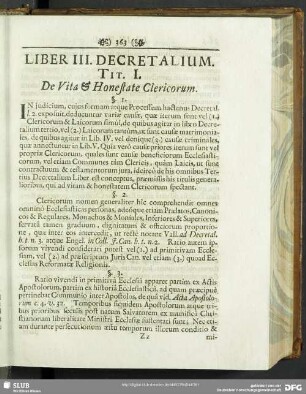 363
LIBER III. DECRETALIUM.
TIT. I.
De Vita & Honestate Clericorum.
§ 1.
IN Judicium, cujus formam atque Processum hactenus Decretal.
l. 2. exposuit, deducuntur variæ causæ, quæ iterum sunt vel (1.)
Clericorum & Laicorum simul, de quibus agitur in libro Decre-
talium tertio, vel (2.) Laicorum tantum, ut sunt causæ matrimonia-
les, de quibus agitur in Lib. IV. vel denique (3.) causæ criminales,
quæ annectuntur in Lib. V. Quia verò causæ priores iterum sunt vel
propriæ Clericorum, quales sunt causæ beneficiorum Ecclesiasti-
corum, vel etiam Communes cum Clericis, quam Laicis, ut sunt
contractuum & testamentorum jura, ideircò de his omnibus Ter-
tius Decretalium Liber est conceptus, præmissis his titulis genera-
lioribus, qui ad vitam & honestatem Clericorum spectant.
§ 2.
Clericorum nomen generaliter hic comprehendit omnes
omninò Ecclesiasticas personas, adeóque etiam Prælatos, Canoni-
cos & Regulares, Monachos & Moniales, Inferiores & Superiores,
servatâ tamen graduum, dignitatis & officiorum proportio-
ne, quæ inter eos intercedit, ut rectè notant Vall. ad Decretal.
h. t. n. 3. atque Engel. in Coll. J. Can. h. t. n. 2. Ratio autem ip-
sorum vivendi considerari potest vel (1.) ad primitivam Eccle-
siam, vel (2.) ad præscriptum Juris Can. vel etiam (3.) quoad Ec-
clesias Reformatæ Religionis.
§ 3.
Ratio vivendi in primitivâ Ecclesiâ apparet partim ex Actis
Apostolorum, partim ex historiâ Ecclesiasticâ, ad quam præcipuè
pertinebat Communio inter Apostolos, de quâ vid. Acta Apostolo-
rum c. 4. v. 32. Temporibus siquidem Apostolorum atque tri-
bus prioribus seculis post natum Salvatorem ex
stianorum liberalitate Ministri Ecclesiæ sustentati sunt; Nec et-
iam durante persecutionum æstu temporum illorum conditio &
Zz
mi-
SLUB